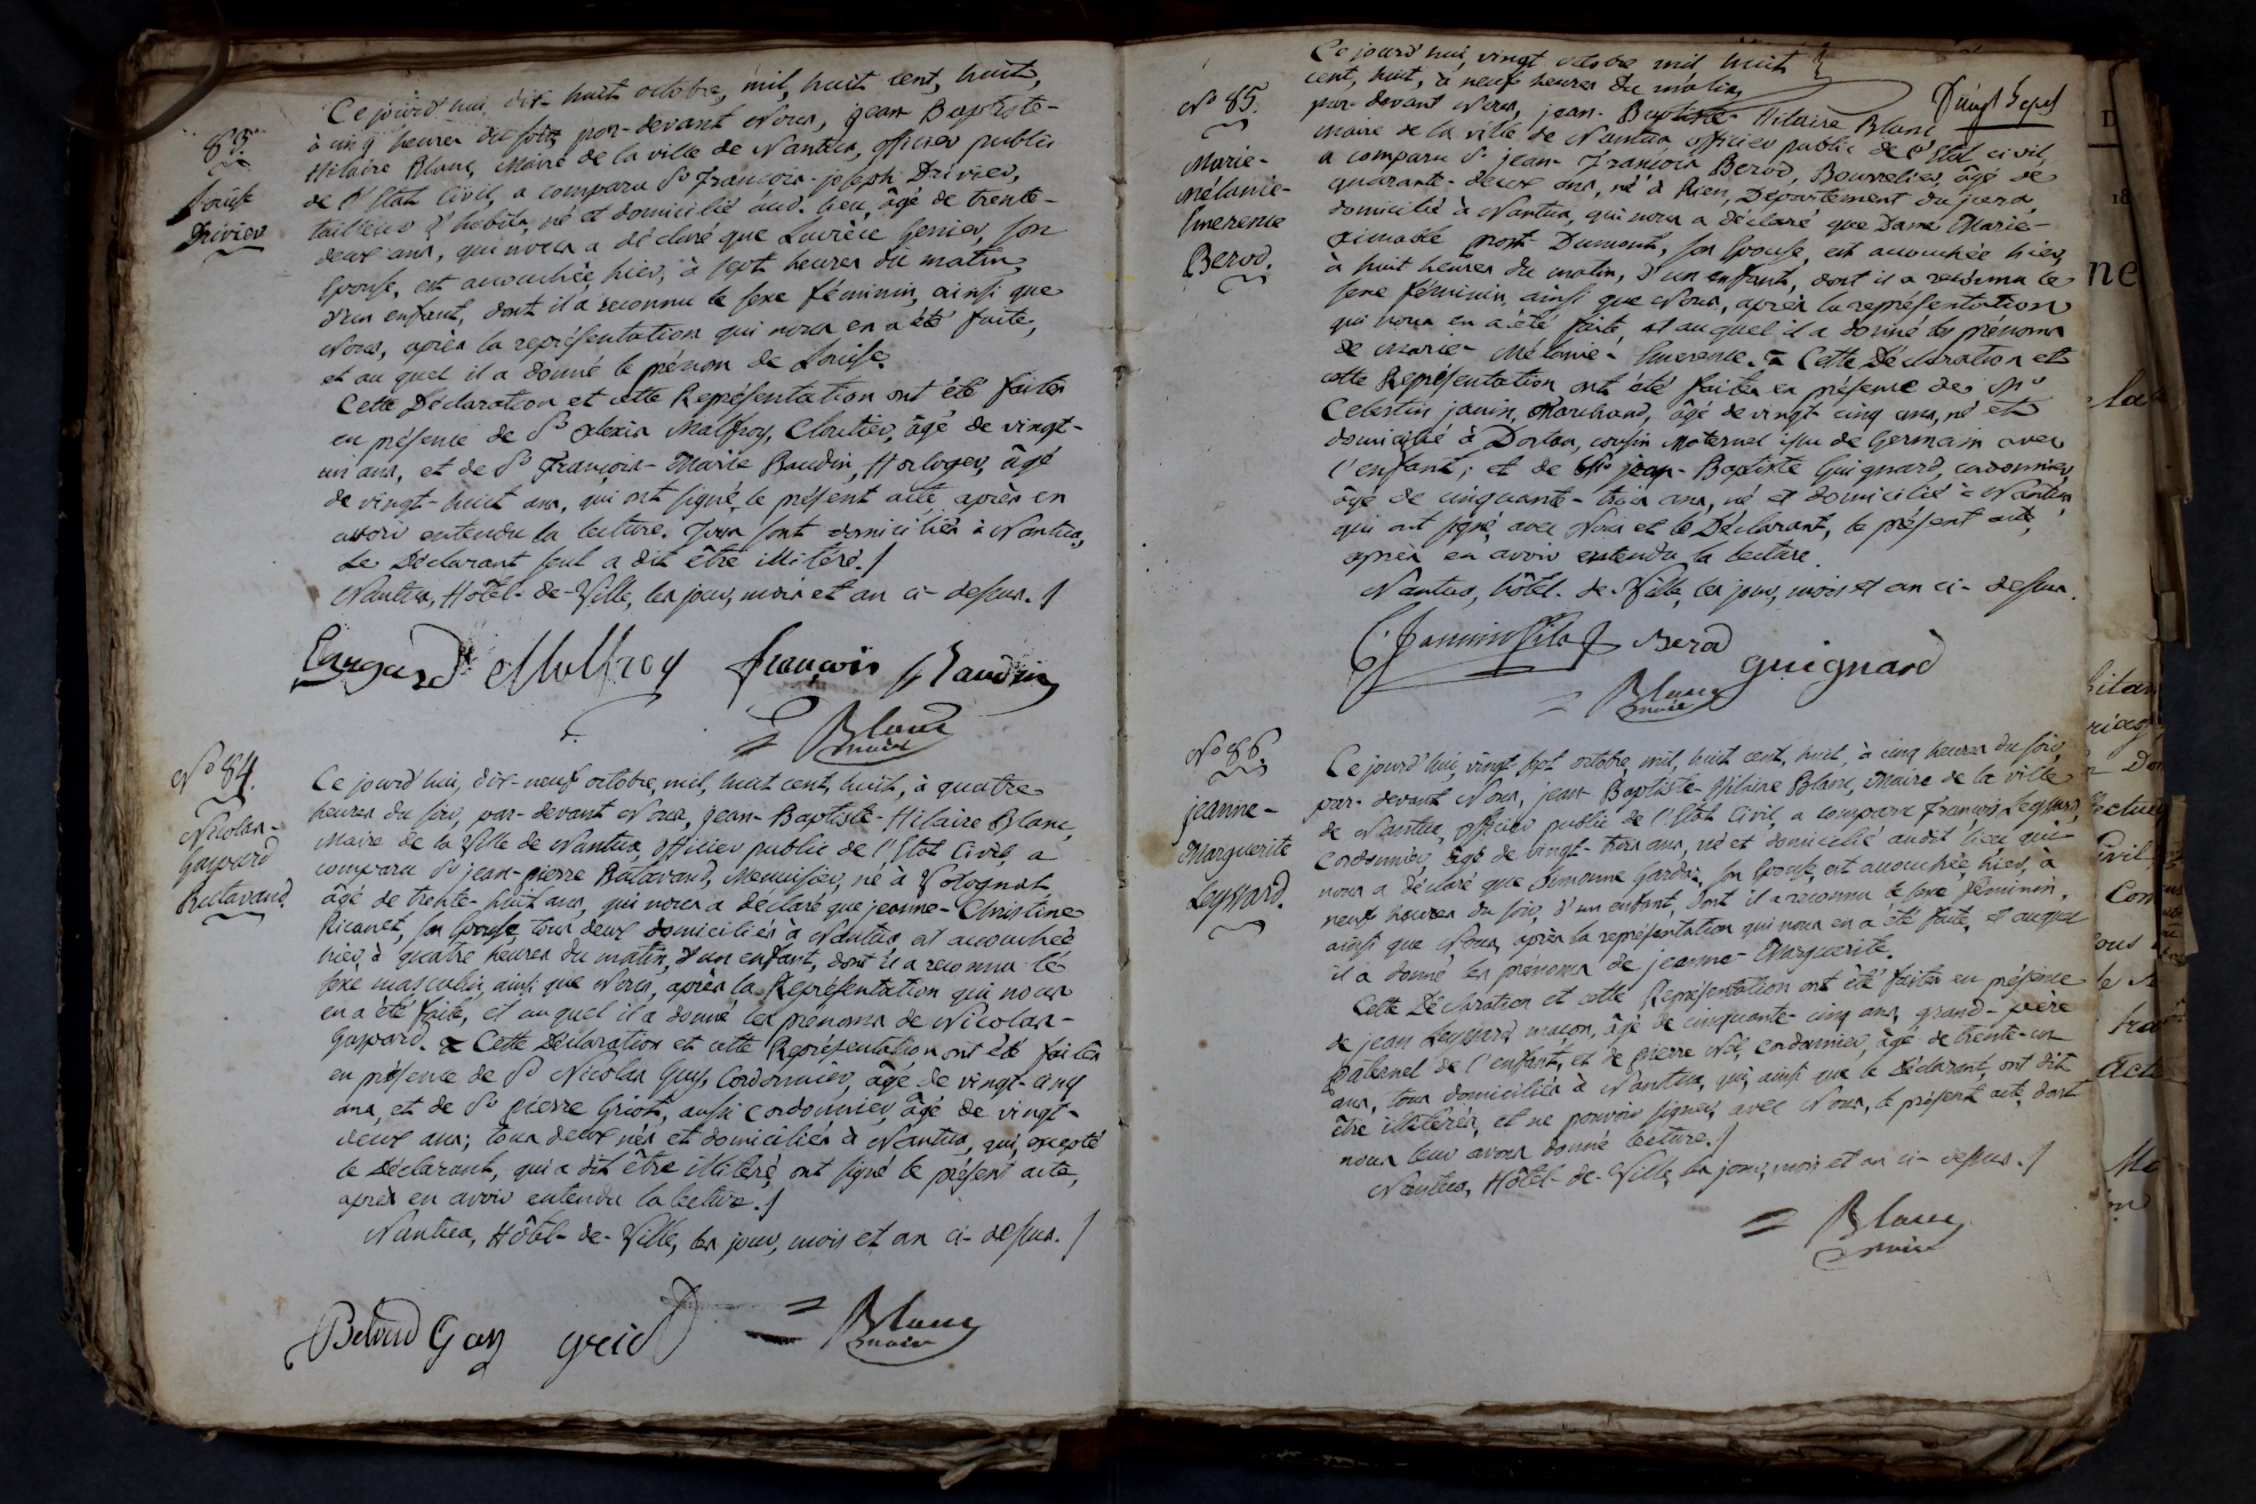 83.
Louise
Drivier
Ce jourd'hui, dix-huit octobre, mil, huit cent, huit,
à cinq heures du soir, par-devant Nous, jean Baptiste-
Hilaire Blanc, Maire de la ville de Nantua, officier public
de l'Etat Civil, a comparu Sr françois-joseph Drivier,
tailleur d'habits, né et domicilié aud. lieu, âgé de trente-
deux ans, qui nous a déclaré que Lucrèce Genier, son
Epouse, est accouchée, hier, à sept heures du matin,
d'un enfant, dont il a reconnu le sexe féminin, ainsi que
Nous, après la représentation qui nous en a été faite,
et au quel il a donné le prénom de Louise.
Cette Déclaration et cette Représentation ont été faites
en présence de Sr alexis Malfroy, Cloutier, âgé de vingt-
un ans, et de Sr françois-Marie Baudin, Horloger, âgé
de vingt-huit ans, qui ont signé le présent acte, après en
avoir entendu la lecture. Tous sont domiciliés à Nantua,
Le Déclarant seul a dit être illitéré./
Nantua, Hôtel-de-Ville, les jour, mois et an ci-dessus./
Malfroy françois Baudin
Blanc
maire
No 84.
Nicolas-
Gaspard
Batavand.
Ce jourd'hui, dix-neuf octobre, mil, huit cent, huit, à quatre
heures du soir, par-devant Nous, Jean-Baptiste-Hilaire Blanc,
Maire de la Ville de Nantua, officier public de l'Etat Civil, a
comparu Sr jean-pierre Batavand, Menuisier, né à Volognat
âgé de trente-huit ans, qui nous a déclaré que jeanne-Christine
Ricanet, son Epouse, tous deux domiciliés à Nantua, est accouchée
hier, à quatre heures du matin, d'un enfant, dont il a reconnu le
sexe masculin, ainsi que Nous, après la Représentation qui nous
en a été faite, et au quel il a donné les prénoms de Nicolas-
Gaspard. Cette Déclaration et cette Représentation ont été faites
en présence de Sr Nicolas Guy, Cordonnier, âgé de vingt-cinq
ans, et de Sr pierre Griot, aussi cordonnier, âgé de vingt-
deux ans; tous deux nés et domiciliés à Nantua, qui, excepté
le Déclarant, qui a dit être illitéré, ont signé le présent acte,
après en avoir entendu la lecture./
Nantua, Hôtel-de-Ville, les jour, mois et an ci-dessus./
Blanc
maire
No 85.
Marie-
Mélanie-
Emerence
Berod.
Ce jourd'hui, vingt octobre mil huit
cent, huit, à neuf heures du matin,
par-devant Nous, jean-Baptiste-Hilaire Blanc
maire de la ville de Nantua, officier public de l'Etat civil,
a comparu Sr jean-françois Berod, Bourrelier, âgé de
quarante-deux ans, né à Rien, Département du jura,
domicilié à Nantua, qui nous a déclaré que Dame Marie-
aimable prost-Dumont, son Epouse, est accouchée hier,
à huit heures du matin, d'un enfant, dont il a reconnu le
sexe féminin, ainsi que Nous, après la représentation
qui nous en a été faite, et au quel il a donné les prénoms
de Marie-Mélanie-Emerence. Cette Déclaration et
cette Représentation ont été faites en présence de Mr
Celestin janin, Marchand, âgé de vingt-cinq ans, né et
domicilié à Dortan, cousin Maternel issu de Germain avec
l'enfant; et de jean-Baptiste Guignard, cordonnier,
âgé de cinquante-trois ans, né et domicilié à Nantua,
qui ont signé, avec Nous et le Déclarant, le présent acte,
après en avoir entendu la lecture.
Nantua, hôtel-de-Ville, les jour, mois et an ci-dessus.
Berod guignard
Blanc
maire
No 86.
jeanne-
Marguerite
Leyssard.
Ce jourd'hui, vingt-sept octobre, mil, huit cent, huit, à cinq heures du soir,
par-devant Nous, jean Baptiste-Hilaire Blanc, Maire de la ville
de Nantua, officier public de l'Etat Civil, a comparu françois Leyssard,
Cordonnier, âgé de vingt-trois ans, né et domicilié audit lieu, qui
nous a déclaré que Simonne Gardaz, son Epouse, est accouchée, hier, à
neuf heures du soir, d'un enfant, dont il a reconnu le sexe féminin,
ainsi que Nous, après la représentation qui nous en a été faite, et auquel
il a donné les prénoms de jeanne-Marguerite.
Cette Déclaration et cette Représentation ont été faites en présence
de jean Leyssard, maçon, âgé de cinquante-cinq ans, grand-père
paternel de l'enfant, et de pierre cordonnier, âgé de trente-un
ans, tous domiciliés à Nantua, qui, ainsi que le Déclarant, ont dit
être illitérés, et ne pouvoir signer, avec Nous, le présent acte, dont
nous leur avons donné lecture./
Nantua, Hôtel-de-Ville, les jour, mois et an ci-dessus./
Blanc
maire